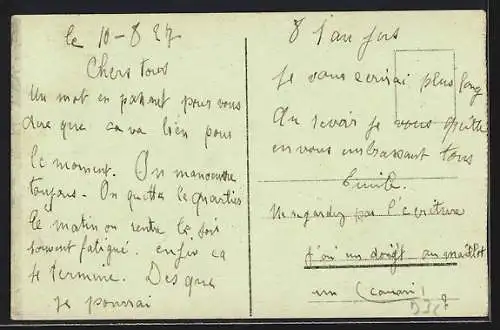 le 10-8 27
Chers tous
Un mot en passant pour vous
dire que ça va bien pour
le moment. On manoeuvre
toujours. On quitte le quartier
le matin on rentre le soir
souvent fatigué. enfin ça
se termine. Dès que
je pourrai
je vous ecrirai plus long
Au revoir je vous quitte
en vous embrassant tous
Emile.
Ne regardez pas l'écriture
j'ai un doigt au maillot
un (canari)